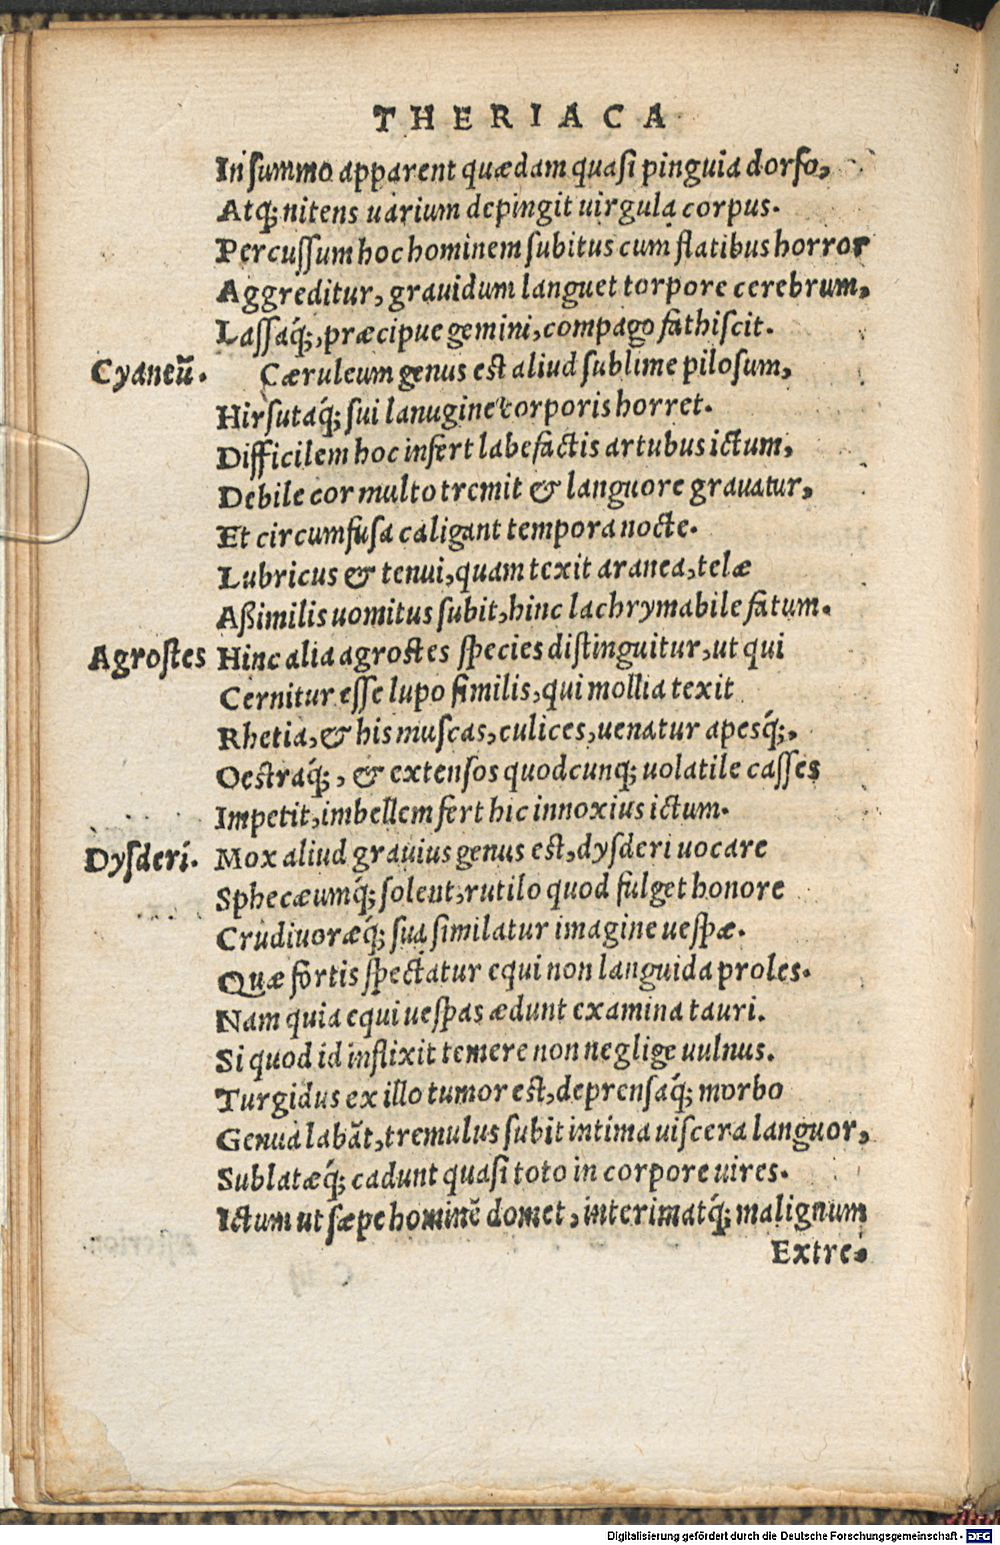 THERIACA
In summo apparent quædam quasi pinguia dorso,
Atq́; nitens uarium depingit uirgula corpus.
Percussum hoc hominem subitus cum flatibus horror
Aggreditur, grauidum languet torpore cerebrum,
Lassaq́;, præcipue gemini, compago fathiscit.
Cyaneũ. Cæruleum genus est aliud sublime pilosum,
Hirsutaq́; sui lanugine corporis horret.
Difficilem hoc infert labefactis artubus ictum,
Debile cor multo tremit & languore grauatur,
Et circumfusa caligant tempora nocte.
Lubricus & tenui, quam texit aranea, telæ
Aßimilis uomitus subit, hinc lachrymabile fatum.
Agrostes Hinc alia agrostes species distinguitur, ut qui
Cernitur esse lupo similis, qui mollia texit
Rhetia, & his muscas, culices, uenatur apesq́;,
Oestraq́;, & extensos quodcunq; uolatile casses
Impetit, imbellem fert hic innoxius ictum.
Dysderi. Mox aliud grauius genus est, dysderi uocare
Sphecæumq́; solent, rutilo quod fulget honore
Crudiuoræq́; sua similatur imagine uespæ.
Quæ fortis spectatur equi non languida proles.
Nam quia equi uespas ædunt examina tauri.
Si quod id inflixit temere non neglige uulnus.
Turgidus ex illo tumor est, deprensaq́; morbo
Genua labãt, tremulus subit intima uiscera languor,
Sublatæq́; cadunt quasi toto in corpore uires.
Ictum ut sæpe hominẽ domet, interimatq́; malignum
Extre.
Digitalisierung gefördert durch die Deutsche Forschungsgemeinschaft - DFG